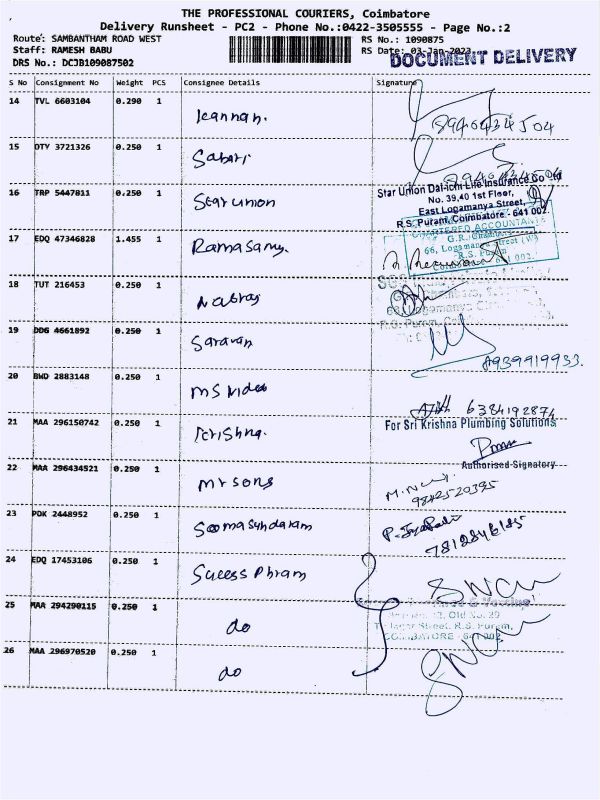 THE PROFESSIONAL COURIERS, Coimbatore
Delivery Runsheet - PC2 - Phone No.:0422-3505555 - Page No.:2
Route: SAMBANTHAM ROAD WEST
RS No.: 1090875
Staff: RAMESH BABU
RS Date: 03-Jan-2023
DOCUMENT DELIVERY
DRS No.: DCJB109087502
S No Consignment No Weight PCS Consignee Details Signature
14 TVL 6603104 0.290 1 Kannan.
8946434504
15 OTY 3721326 0.250 1 Sabari
16 TRP 5447011 0.250 1 Star union
Star Union Dai-ichi Life Insurance Co Ltd
No. 39,40 1st Floor,
East Logamanya Street,
R.S. Puram, Coimbatore - 641 002.
17 EDQ 47346828 1.455 1 Ramasamy.
CHARTERED ACCOUNTANT
66, Logamanya Street (W)
R.S. Puram
18 TUT 216453 0.250 1
19 DDG 4661892 0.250 1 Saravan
8939919933.
20 BWD 2883148 0.250 1
6384192874
21 MAA 296150742 0.250 1 Krishna.
For Sri Krishna Plumbing Solutions
Authorised Signatory
22 MAA 296434521 0.250 1 Mrsons
9842520395
23 PDK 2448952 0.250 1 Soomasundaram
7812846185
24 EDQ 17453106 0.250 1 Sucess Phram
25 MAA 294290115 0.250 1 do
Old No. 29
Street, R.S. Puram,
COIMBATORE - 641 002
26 MAA 296970520 0.250 1 do